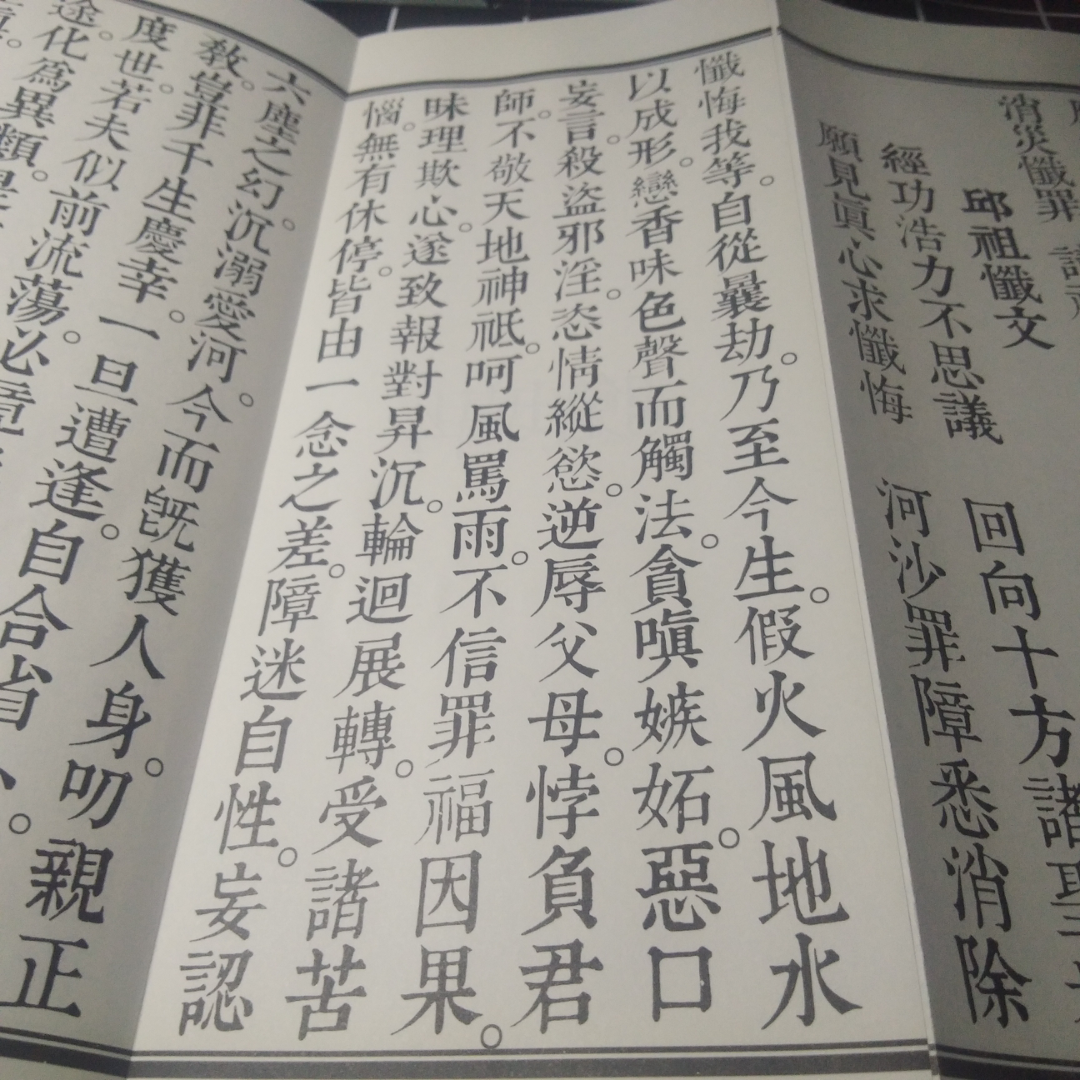 消災懺罪
邱祖懺文 回向十方諸聖
經功浩力不思議 河沙罪障悉消除
願見眞心求懺悔
懺悔我等。自從曩劫。乃至今生。假火風地水
以成形。戀香味色聲而觸法。貪嗔嫉妬。惡口
妄言。殺盜邪淫。恣情縱慾。逆辱父母。悖負君
師。不敬天地神祇。呵風罵雨。不信罪福因果。
昧理欺心。遂致報對昇沉。輪迴展轉。受諸苦
惱。無有休停。皆由一念之差。障迷自性。妄認
六塵之幻。沉溺愛河。今而旣獲人身。叨親正
敎。豈非千生慶幸。一旦遭逢。自合省
度世。若夫似前流蕩。必
途。化爲異類。